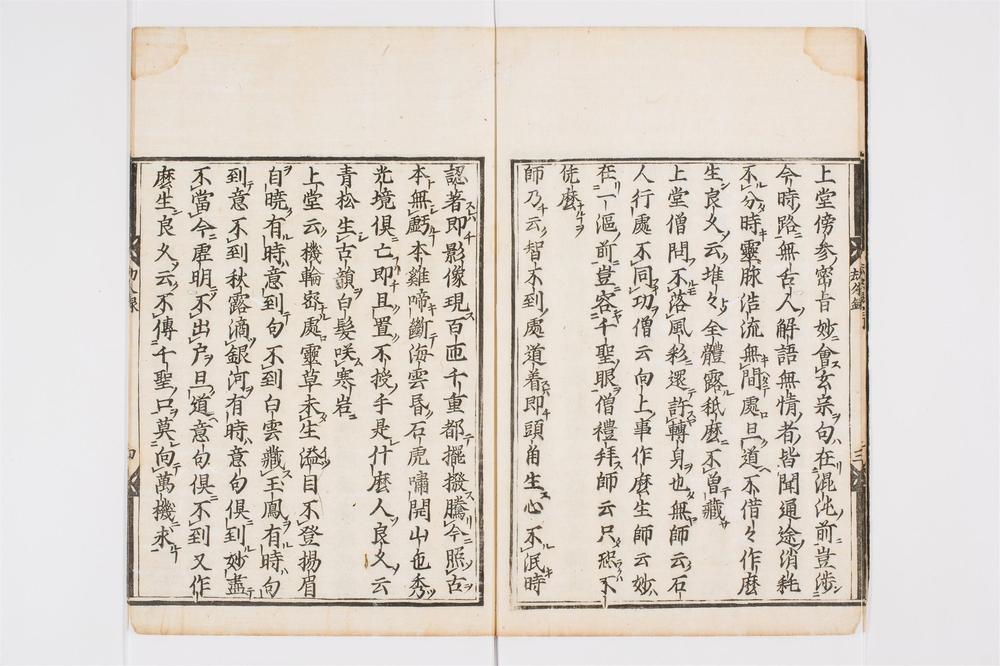 上堂傍参密旨妙會玄宗句在混沌前豈渉
今時路無舌人解語無情者皆聞通途消耗
不分時靈脉浩流無間處且道不借々作麼
生良久云堆々全體露秖麼不曽藏
上堂僧問不落風彩還許轉身也無師云石
人行處不同功僧云向上事作麼生師云妙
在一漚前豈容千聖眼僧禮拜師云只恐不
恁麼
師乃云智不到處道着即頭角生心不泯時
認著即影像現百匝千重都擺撥騰今照古
本無虧本雞啼斷海雲昏石虎嘯開山也秀
光境俱亡即且置不授手是什麼人良久云
青松生古韻白髮咲寒岩
上堂云機輪密處靈草未生溢目不登揚眉
自曉有時意到句不到白雲藏玉鳳有時句
到意不到秋露滴銀河有時意句俱到妙盡
不當今虚明不出户且道意句俱不到又作
麼生良久云不傳千聖口莫向萬機求